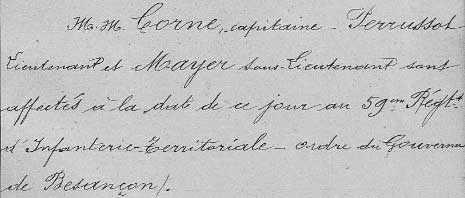 M. M. Corne, capitaine - Perrussot
Lieutenant et Mayer sous-Lieutenant sont
affectés à la date de ce jour au 59ème Régt
d'Infanterie-Territoriale - ordre du Gouverne
de Besançon/.